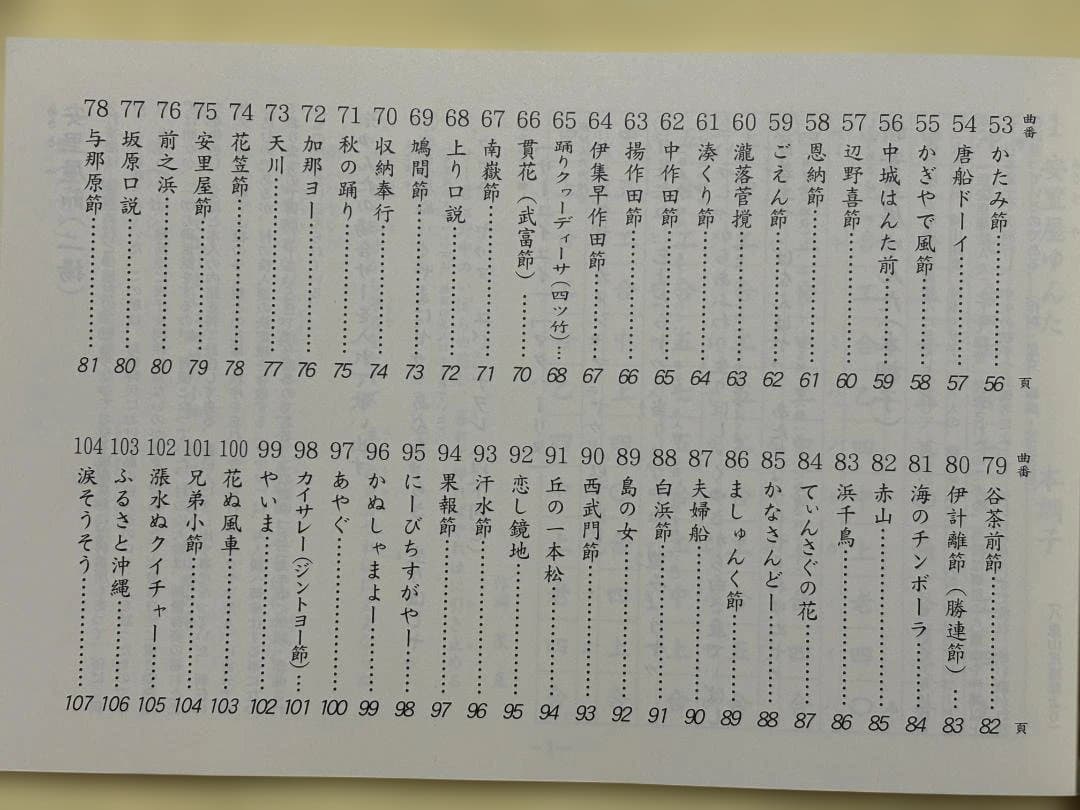 曲番 頁
53 かたみ節 56
54 唐船ドーイ 57
55 かぎやで風節 58
56 中城はんた前 59
57 辺野喜節 60
58 恩納節 61
59 ごえん節 62
60 瀧落菅撹 63
61 湊くり節 64
62 中作田節 65
63 揚作田節 66
64 伊集早作田節 67
65 踊りクヮーディーサ(四ツ竹) 68
66 貫花(武富節) 70
67 南嶽節 71
68 上り口説 72
69 鳩間節 73
70 収納奉行 74
71 秋の踊り 75
72 加那ヨー 76
73 天川 77
74 花笠節 78
75 安里屋節 79
76 前之浜 80
77 坂原口説 80
78 与那原節 81
曲番 頁
79 谷茶前節 82
80 伊計離節(勝連節) 83
81 海のチンボーラ 84
82 赤山 85
83 浜千鳥 86
84 てぃんさぐの花 87
85 かなさんどー 88
86 ましゅんく節 89
87 夫婦船 90
88 白浜節 91
89 島の女 92
90 西武門節 93
91 丘の一本松 94
92 恋し鏡地 95
93 汗水節 96
94 果報節 97
95 にーびちすがやー 98
96 かぬしゃまよー 99
97 あやぐ 100
98 カイサレー(ジントヨー節) 101
99 やいま 102
100 花ぬ風車 103
101 兄弟小節 104
102 漲水ぬクイチャー 105
103 ふるさと沖縄 106
104 涙そうそう 107